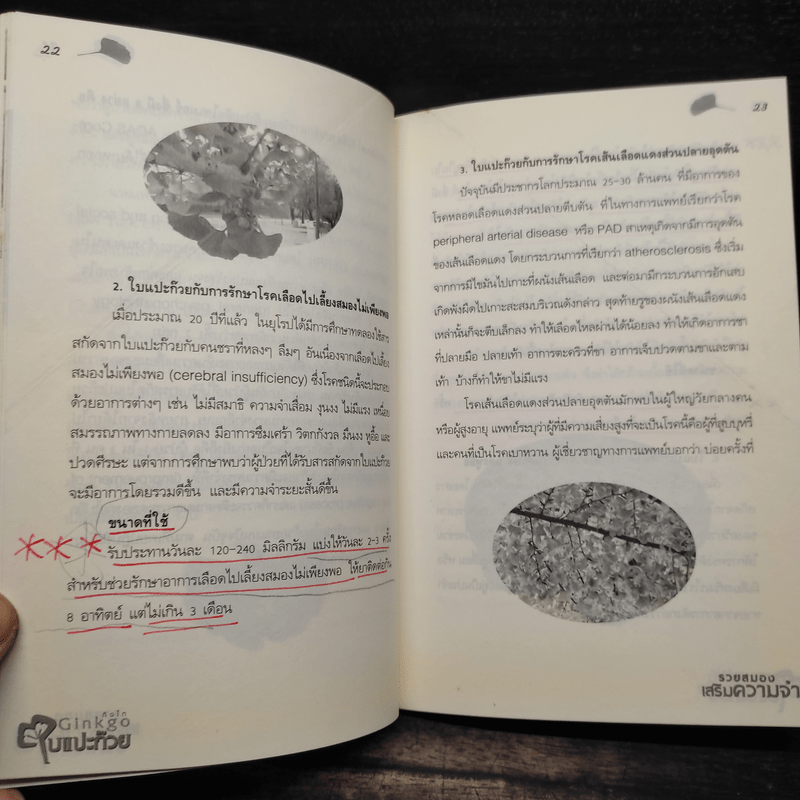 22
2. ใบแปะก๊วยกับการรักษาโรคเลือดไปเลี้ยงสมองไม่เพียงพอ
เมื่อประมาณ 20 ปีที่แล้ว ในยุโรปได้มีการศึกษาทดลองใช้สาร
สกัดจากใบแปะก๊วยกับคนชราที่หลงๆ ลืมๆ อันเนื่องจากเลือดไปเลี้ยง
สมองไม่เพียงพอ (cerebral insufficiency) ซึ่งโรคชนิดนี้จะประกอบ
ด้วยอาการต่างๆ เช่น ไม่มีสมาธิ ความจำเสื่อม งุนงง ไม่มีแรง เหนื่อย
สมรรถภาพทางกายลดลง มีอาการซึมเศร้า วิตกกังวล มึนงง หูอื้อ และ
ปวดศีรษะ แต่จากการศึกษาพบว่าผู้ป่วยที่ได้รับสารสกัดจากใบแปะก๊วย
จะมีอาการโดยรวมดีขึ้น และมีความจำระยะสั้นดีขึ้น
ขนาดที่ใช้
รับประทานวันละ 120-240 มิลลิกรัม แบ่งให้วันละ 2-3 ครั้ง
สำหรับช่วยรักษาอาการเลือดไปเลี้ยงสมองไม่เพียงพอ ให้ยาติดต่อกัน
8 อาทิตย์ แต่ไม่เกิน 3 เดือน
Ginkgo
ใบแปะก๊วย
23
3. ใบแปะก๊วยกับการรักษาโรคเส้นเลือดแดงส่วนปลายอุดตัน
ปัจจุบันมีประชากรโลกประมาณ 25-30 ล้านคน ที่มีอาการของ
โรคหลอดเลือดแดงส่วนปลายตีบตัน ที่ในทางการแพทย์เรียกว่าโรค
peripheral arterial disease หรือ PAD สาเหตุเกิดจากมีการอุดตัน
ของเส้นเลือดแดง โดยกระบวนการที่เรียกว่า atherosclerosis ซึ่งเริ่ม
จากการมีไขมันไปเกาะที่ผนังเส้นเลือด และต่อมามีกระบวนการอักเสบ
เกิดพังผืดไปเกาะสะสมบริเวณดังกล่าว สุดท้ายรูของผนังเส้นเลือดแดง
เหล่านั้นก็จะตีบเล็กลง ทำให้เลือดไหลผ่านได้น้อยลง ทำให้เกิดอาการชา
ที่ปลายมือ ปลายเท้า อาการตะคริวที่ขา อาการเจ็บปวดตามขาและตาม
เท้า บ้างก็ทำให้ขาไม่มีแรง
โรคเส้นเลือดแดงส่วนปลายอุดตันมักพบในผู้ใหญ่วัยกลางคน
หรือผู้สูงอายุ แพทย์ระบุว่าผู้ที่มีความเสี่ยงสูงที่จะเป็นโรคนี้คือผู้ที่สูบบุหรี่
และคนที่เป็นโรคเบาหวาน ผู้เชี่ยวชาญทางการแพทย์บอกว่า บ่อยครั้งที่
รวยสมอง
เสริมความจำ